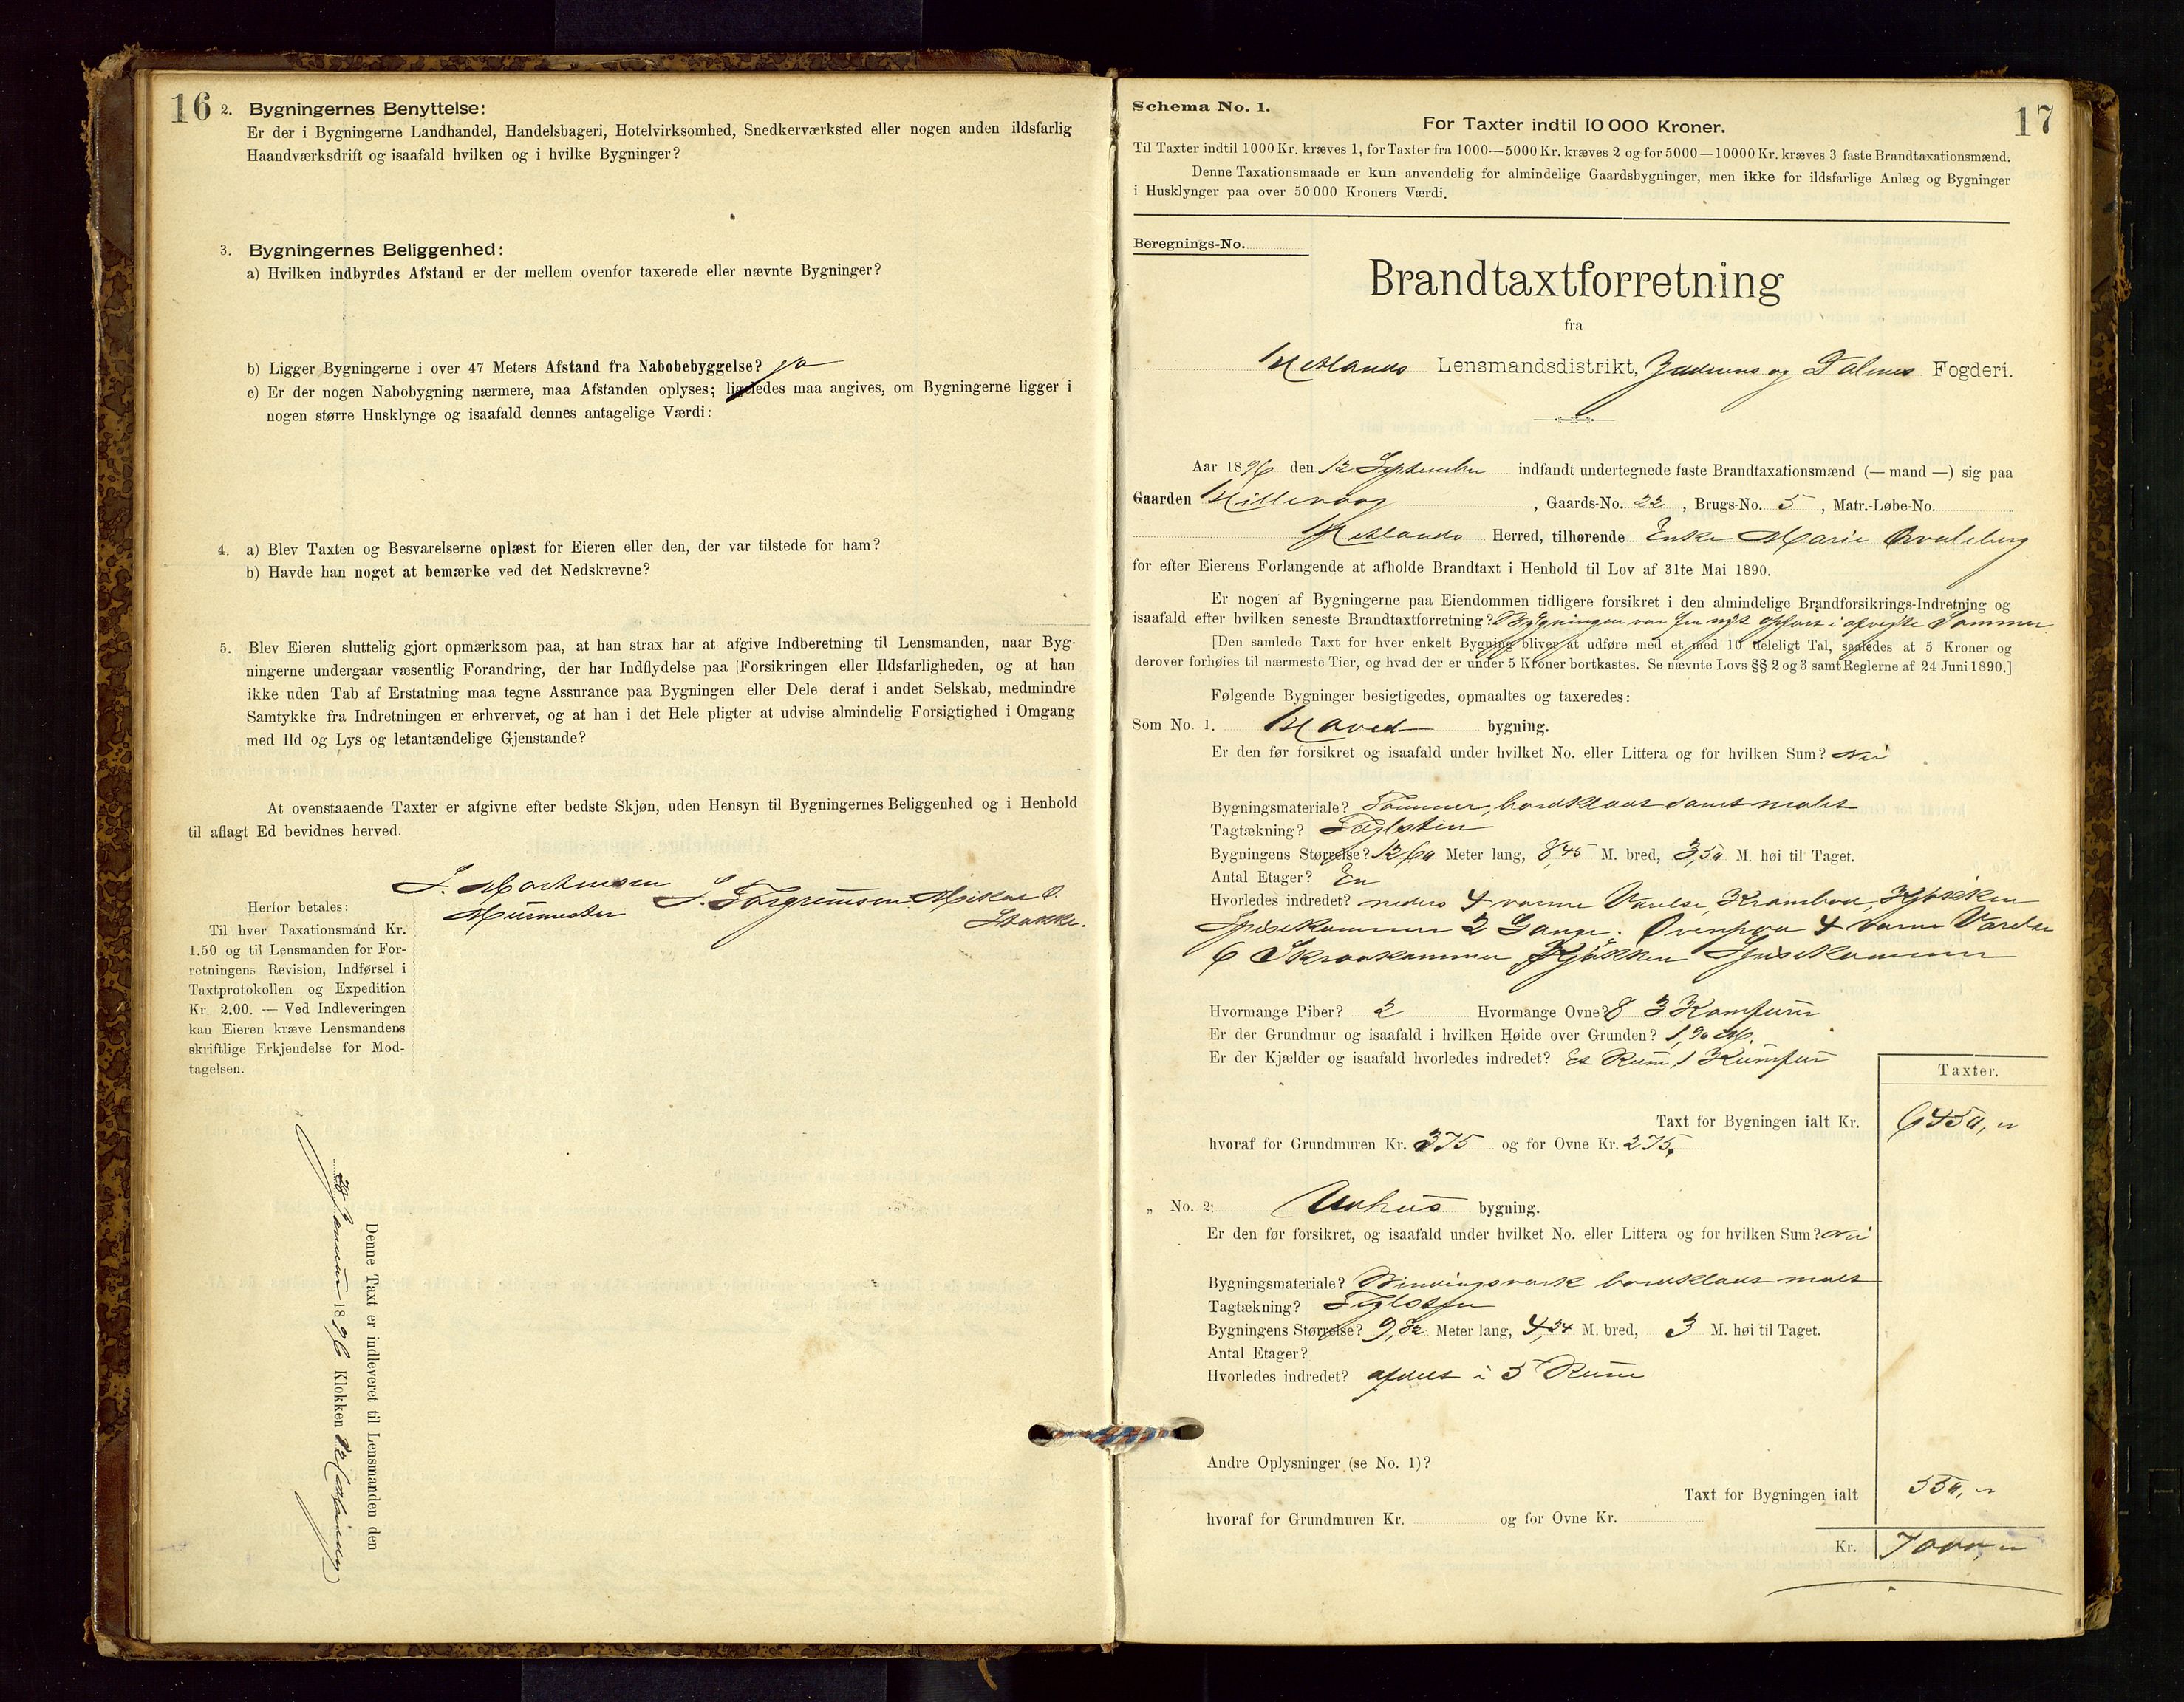 16
2. Bygningernes Benyttelse:
Er der i Bygningerne Landhandel, Handelsbageri, Hotelvirksomhed, Snedkerværksted eller nogen anden ildsfarlig
Haandværksdrift og isaafald hvilken og i hvilke Bygninger?
3. Bygningernes Beliggenhed:
a) Hvilken indbyrdes Afstand er der mellem ovenfor taxerede eller nævnte Bygninger?
b) Ligger Bygningerne i over 47 Meters Afstand fra Nabobebyggelse? ja
c) Er der nogen Nabobygning nærmere, maa Afstanden oplyses; ligeledes maa angives, om Bygningerne ligger i
nogen større Husklynge og isaafald dennes antagelige Værdi:
4. a) Blev Taxten og Besvarelserne oplæst for Eieren eller den, der var tilstede for ham?
b) Havde han noget at bemærke ved det Nedskrevne?
5. Blev Eieren sluttelig gjort opmærksom paa, at han strax har at afgive Indberetning til Lensmanden, naar Byg-
ningerne undergaar væsentlig Forandring, der har Indflydelse paa Forsikringen eller Ildsfarligheden, og at han
ikke uden Tab af Erstatning maa tegne Assurance paa Bygningen eller Dele deraf i andet Selskab, medmindre
Samtykke fra Indretningen er erhvervet, og at han i det Hele pligter at udvise almindelig Forsigtighed i Omgang
med Ild og Lys og letantændelige Gjenstande?
At ovenstaaende Taxter er afgivne efter bedste Skjøn, uden Hensyn til Bygningernes Beliggenhed og i Henhold
til aflagt Ed bevidnes herved.
S. Mortensen S. Torgrimsen Mikal O.
Murmester Stokke.
Herfor betales:
Til hver Taxationsmand Kr.
1.50 og til Lensmanden for For-
retningens Revision, Indførsel i
Taxtprotokollen og Expedition
Kr. 2.00. — Ved Indleveringen
kan Eieren kræve Lensmandens
skriftlige Erkjendelse for Mod-
tagelsen.
Denne Taxt er indleveret til Lensmanden den
28 Januar 1896 Klokken 12 (Middag)
17
Schema No. 1.
For Taxter indtil 10 000 Kroner.
Til Taxter indtil 1000 Kr. kræves 1, for Taxter fra 1000—5000 Kr. kræves 2 og for 5000—10000 Kr. kræves 3 faste Brandtaxationsmænd.
Denne Taxationsmaade er kun anvendelig for almindelige Gaardsbygninger, men ikke for ildsfarlige Anlæg og Bygninger
i Husklynger paa over 50 000 Kroners Værdi.
Beregnings-No.
Brandtaxtforretning
fra
Hetlands Lensmandsdistrikt, Jæderens og Dalernes Fogderi.
Aar 1896 den 12 September indfandt undertegnede faste Brandtaxationsmænd (— mand —) sig paa
Gaarden Hillevaag, Gaards-No. 22, Brugs-No. 5, Matr.-Løbe-No.
Hetlands Herred, tilhørende Enke Marie Qvaleberg
for efter Eierens Forlangende at afholde Brandtaxt i Henhold til Lov af 31te Mai 1890.
Er nogen af Bygningerne paa Eiendommen tidligere forsikret i den almindelige Brandforsikrings-Indretning og
isaafald efter hvilken seneste Brandtaxtforretning? Bygningen var fra nyt opført i afvigte Sommer
[Den samlede Taxt for hver enkelt Bygning bliver at udføre med et med 10 deleligt Tal, saaledes at 5 Kroner og
derover forhøies til nærmeste Tier, og hvad der er under 5 Kroner bortkastes. Se nævnte Lovs §§ 2 og 3 samt Reglerne af 24 Juni 1890.]
Følgende Bygninger besigtigedes, opmaaltes og taxeredes:
Som No. 1. Hoved bygning.
Er den før forsikret og isaafald under hvilket No. eller Littera og for hvilken Sum? nei
Bygningsmateriale? Tømmer, bordklædt samt malet
Tagtækning? Taglsten
Bygningens Størrelse? 12,60 Meter lang, 8,45 M. bred, 3,50 M. høi til Taget.
Antal Etager? En
Hvorledes indredet? neders 4 varme Værelse, Krambod, Kjøkken
Spisekammer 2 Gange. Ovenpaa 4 varme Værelse
6 Skraakammer Kjøkken Spisekammer
Hvormange Piber? 2 Hvormange Ovne? 8 3 Komfurer
Er der Grundmur og isaafald i hvilken Høide over Grunden? 1,90 M.
Er der Kjælder og isaafald hvorledes indredet? Et Rum, 1 Kumfur
Taxter.
Taxt for Bygningen ialt Kr. 6450, "
hvoraf for Grundmuren Kr. 375 og for Ovne Kr. 275.
" No. 2: Udhus bygning.
Er den før forsikret, og isaafald under hvilket No. eller Littera og for hvilken Sum? nei
Bygningsmateriale? Bindingsværk bordklædt malet
Tagtækning? Teglsten
Bygningens Størrelse? 9,82 Meter lang, 4,34 M. bred, 3 M. høi til Taget.
Antal Etager?
Hvorledes indredet? afdelt i 5 Rum
Andre Oplysninger (se No. 1)?
Taxt for Bygningen ialt 550, "
hvoraf for Grundmuren Kr. og for Ovne Kr.
Kr. 7000, "